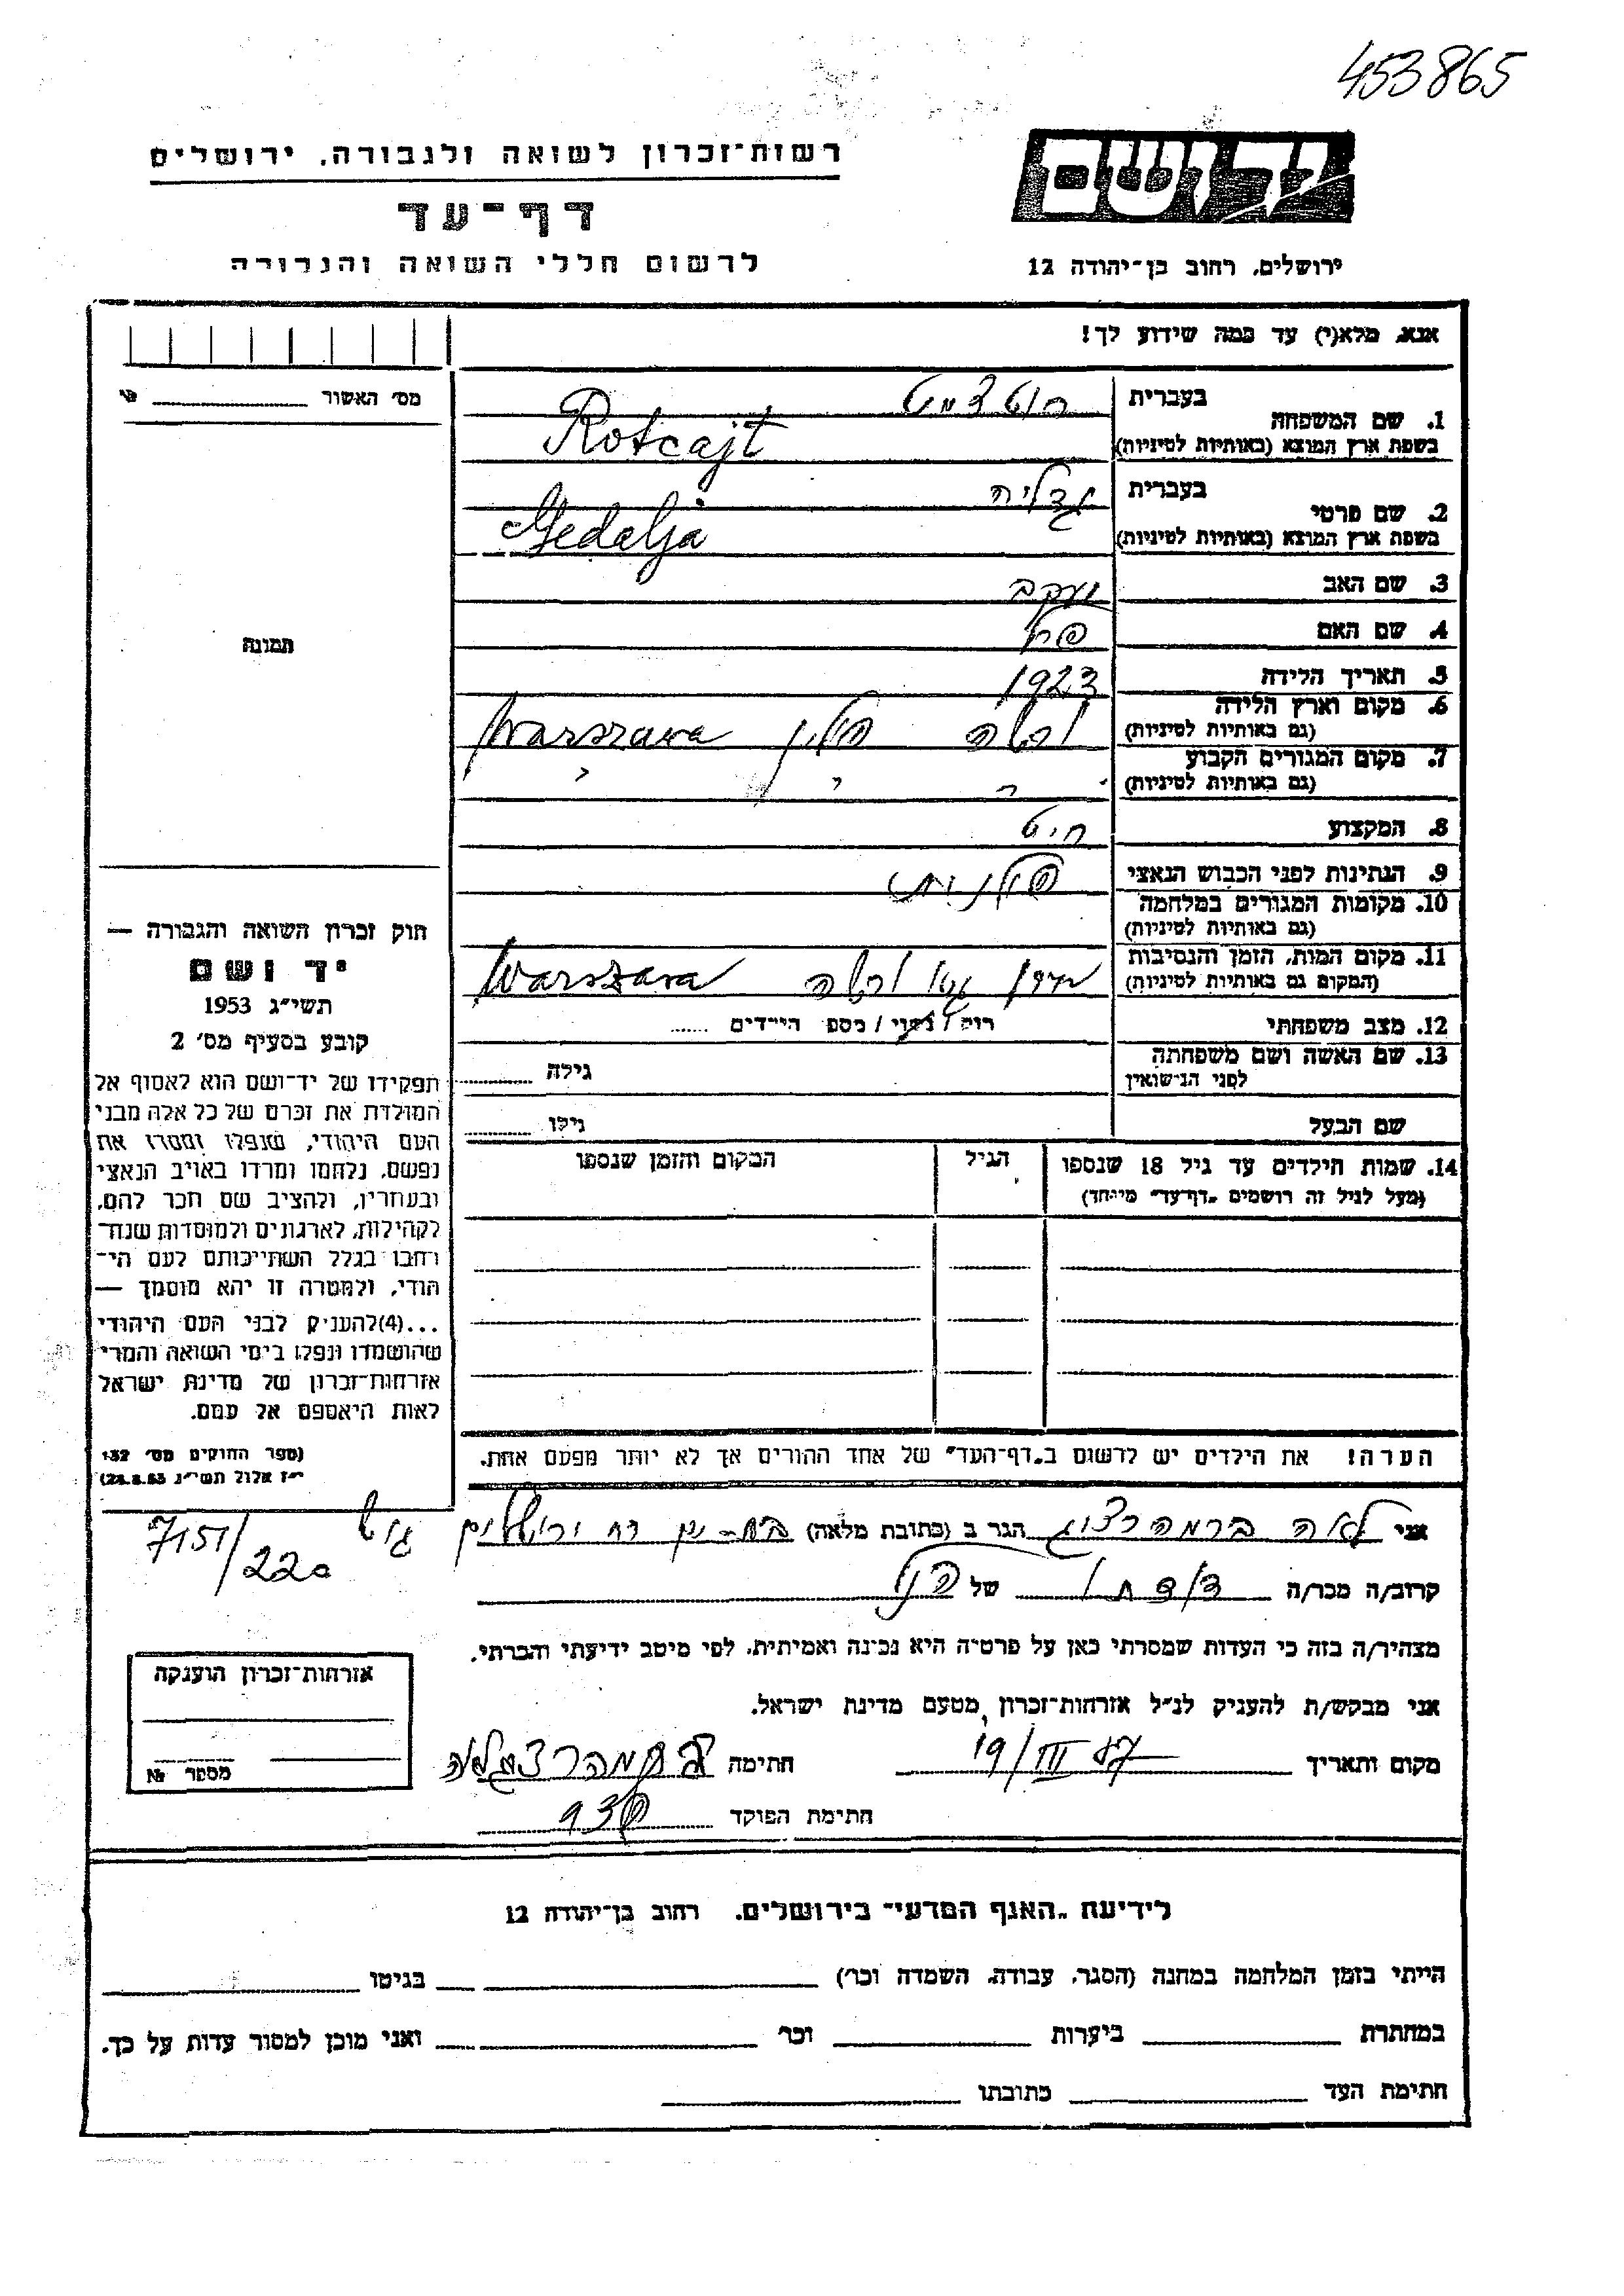 453865
יד ושם
רשות־זכרון לשואה ולגבורה, ירושלים
דף־עד
ירושלים, רחוב בן־יהודה 12
לרשום חללי השואה והגבורה
אנא, מלא(י) עד כמה שידוע לך!
מס׳ האשור № 
1. שם המשפחה
בעברית
בשפת ארץ המוצא (באותיות לטיניות)
Rotcajt
2. שם פרטי
בעברית גדליה
בשפת ארץ המוצא (באותיות לטיניות)
Gedalja
3. שם האב יעקב
4. שם האם
5. תאריך הלידה 1923
6. מקום וארץ הלידה
(גם באותיות לטיניות) ורשה פולין Warszawa
7. מקום המגורים הקבוע
(גם באותיות לטיניות)
8. המקצוע חיט
9. הנתינות לפני הכבוש הנאצי פולנית
10. מקומות המגורים במלחמה
(גם באותיות לטיניות)
11. מקום המות, הזמן והנסיבות
(המקום גם באותיות לטיניות) גטו ורשה Warszawa
12. מצב משפחתי רוק / נשוי / מספר הילדים ......
13. שם האשה ושם משפחתה
לפני הנישואין גילה
שם הבעל גילו
14. שמות הילדים עד גיל 18 שנספו
(מעל לגיל זה רושמים „דף־עד״ מיוחד)
הגיל
המקום והזמן שנספו
הערה! את הילדים יש לרשום ב„דף־העד״ של אחד ההורים אך לא יותר מפעם אחת.
תמונה
חוק זכרון השואה והגבורה —
יד ושם
תשי״ג 1953
קובע בסעיף מס׳ 2
תפקידו של יד־ושם הוא לאסוף אל
המולדת את זכרם של כל אלה מבני
העם היהודי, שנפלו ומסרו את
נפשם, נלחמו ומרדו באויב הנאצי
ובעוזריו, ולהציב שם וזכר להם,
לקהילות, לארגונים ולמוסדות שנח־
רבו בגלל השתייכותם לעם הי־
הודי, ולמטרה זו יהא מוסמך —
...(4)להעניק לבני העם היהודי
שהושמדו ונפלו בימי השואה והמרי
אזרחות־זכרון של מדינת ישראל
לאות היאספם אל עמם.
(ספר החוקים מס׳ 132
י״ז אלול תשי״ג 28.8.53)
אני לאה ברמהרצוג הגר ב (כתובת מלאה)
7151/220
קרוב/ה מכר/ה דודתו של הנ״ל
מצהיר/ה בזה כי העדות שמסרתי כאן על פרטיה היא נכונה ואמיתית, לפי מיטב ידיעתי והכרתי.
אני מבקש/ת להעניק לנ״ל אזרחות־זכרון מטעם מדינת ישראל.
מקום ותאריך 19/III 57 חתימה
חתימת הפוקד
אזרחות־זכרון הוענקה
מספר №
לידיעת „האגף המדעי״ בירושלים, רחוב בן־יהודה 12
הייתי בזמן המלחמה במחנה (הסגר, עבודה, השמדה וכו׳) בגיטו
במחתרת ביערות וכו׳ ואני מוכן למסור עדות על כך.
חתימת העד כתובתו